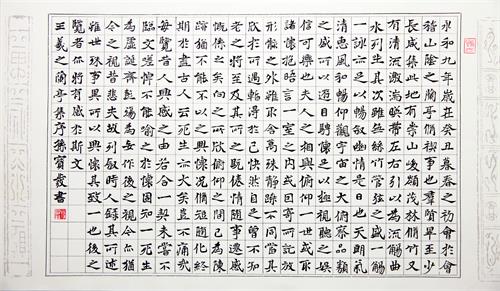 永和九年歲在癸丑暮春之初會於會
稽山陰之蘭亭修禊事也羣賢畢至少
長咸集此地有崇山峻嶺茂林修竹又
有清流激湍映帶左右引以為流觴曲
水列坐其次雖無絲竹管弦之盛一觴
一詠亦足以暢敘幽情是日也天朗氣
清惠風和暢仰觀宇宙之大俯察品類
之盛所以遊目騁懷足以極視聽之娛
信可樂也夫人之相與俯仰一世或取
諸懷抱晤言一室之內或因寄所託放
形骸之外雖趣舍萬殊靜躁不同當其
欣於所遇暫得於己快然自足曾不知
老之將至及其所之既倦情隨事遷感
慨係之矣向之所欣俯仰之間已為陳
跡猶不能不以之興懷況修短隨化終
期於盡古人云死生亦大矣豈不痛哉
每覽昔人興感之由若合一契未嘗不
臨文嗟悼不能喻之於懷固知一死生
為虛誕齊彭殤為妄作後之視今亦猶
今之視昔悲夫故列敘時人錄其所述
雖世殊事異所以興懷其致一也後之
覽者亦將有感於斯文
王羲之蘭亭集序孫寶霞書